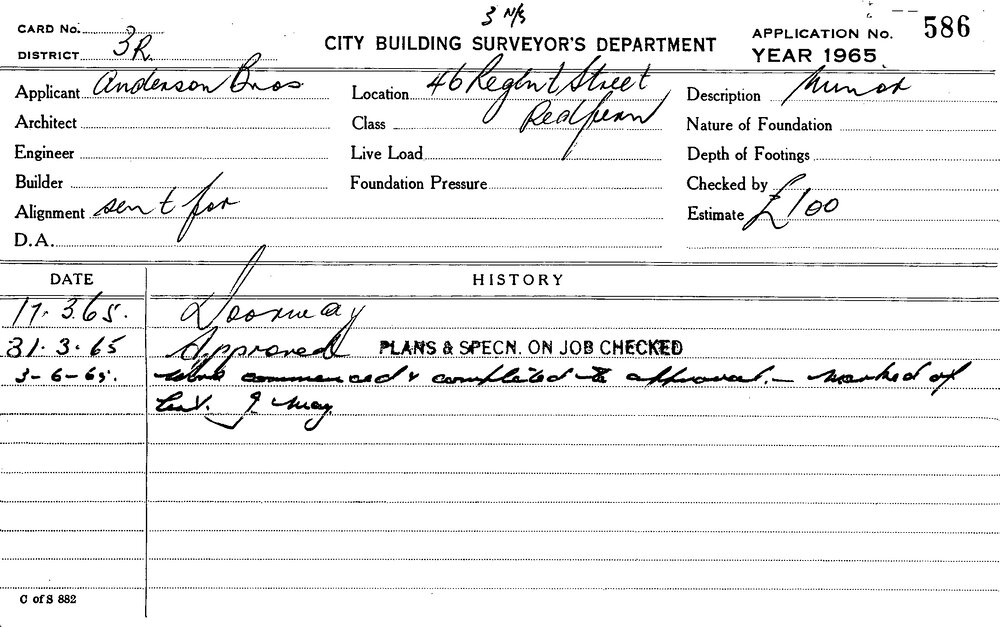 3 N/S
CARD No. APPLICATION No. 586
DISTRICT 3R. CITY BUILDING SURVEYOR'S DEPARTMENT YEAR 1965
Applicant Anderson Bros Location 46 Regent Street Description Minor
Architect Class Redfern Nature of Foundation
Engineer Live Load Depth of Footings
Builder Foundation Pressure Checked by
Alignment sent for Estimate £100
D.A.
DATE HISTORY
17.3.65. Doorway
31.3.65 Approved PLANS & SPECN. ON JOB CHECKED
3-6-65. Work commenced & completed to approval. – Marked of
J May
C of S 882